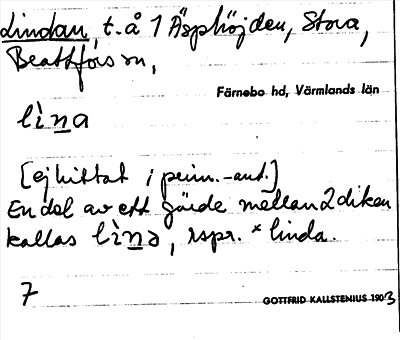 Lindan, t. å 1 Äsphöjden, Stora,
Beatefors sn,
Färnebo hd, Värmlands län
lìna
[ej hittat i prim.-ant.]
En del av ett gärde mellan 2 diken
kallas lìnə, rspr. *linda.
7
GOTTFRID KALLSTENIUS 1903